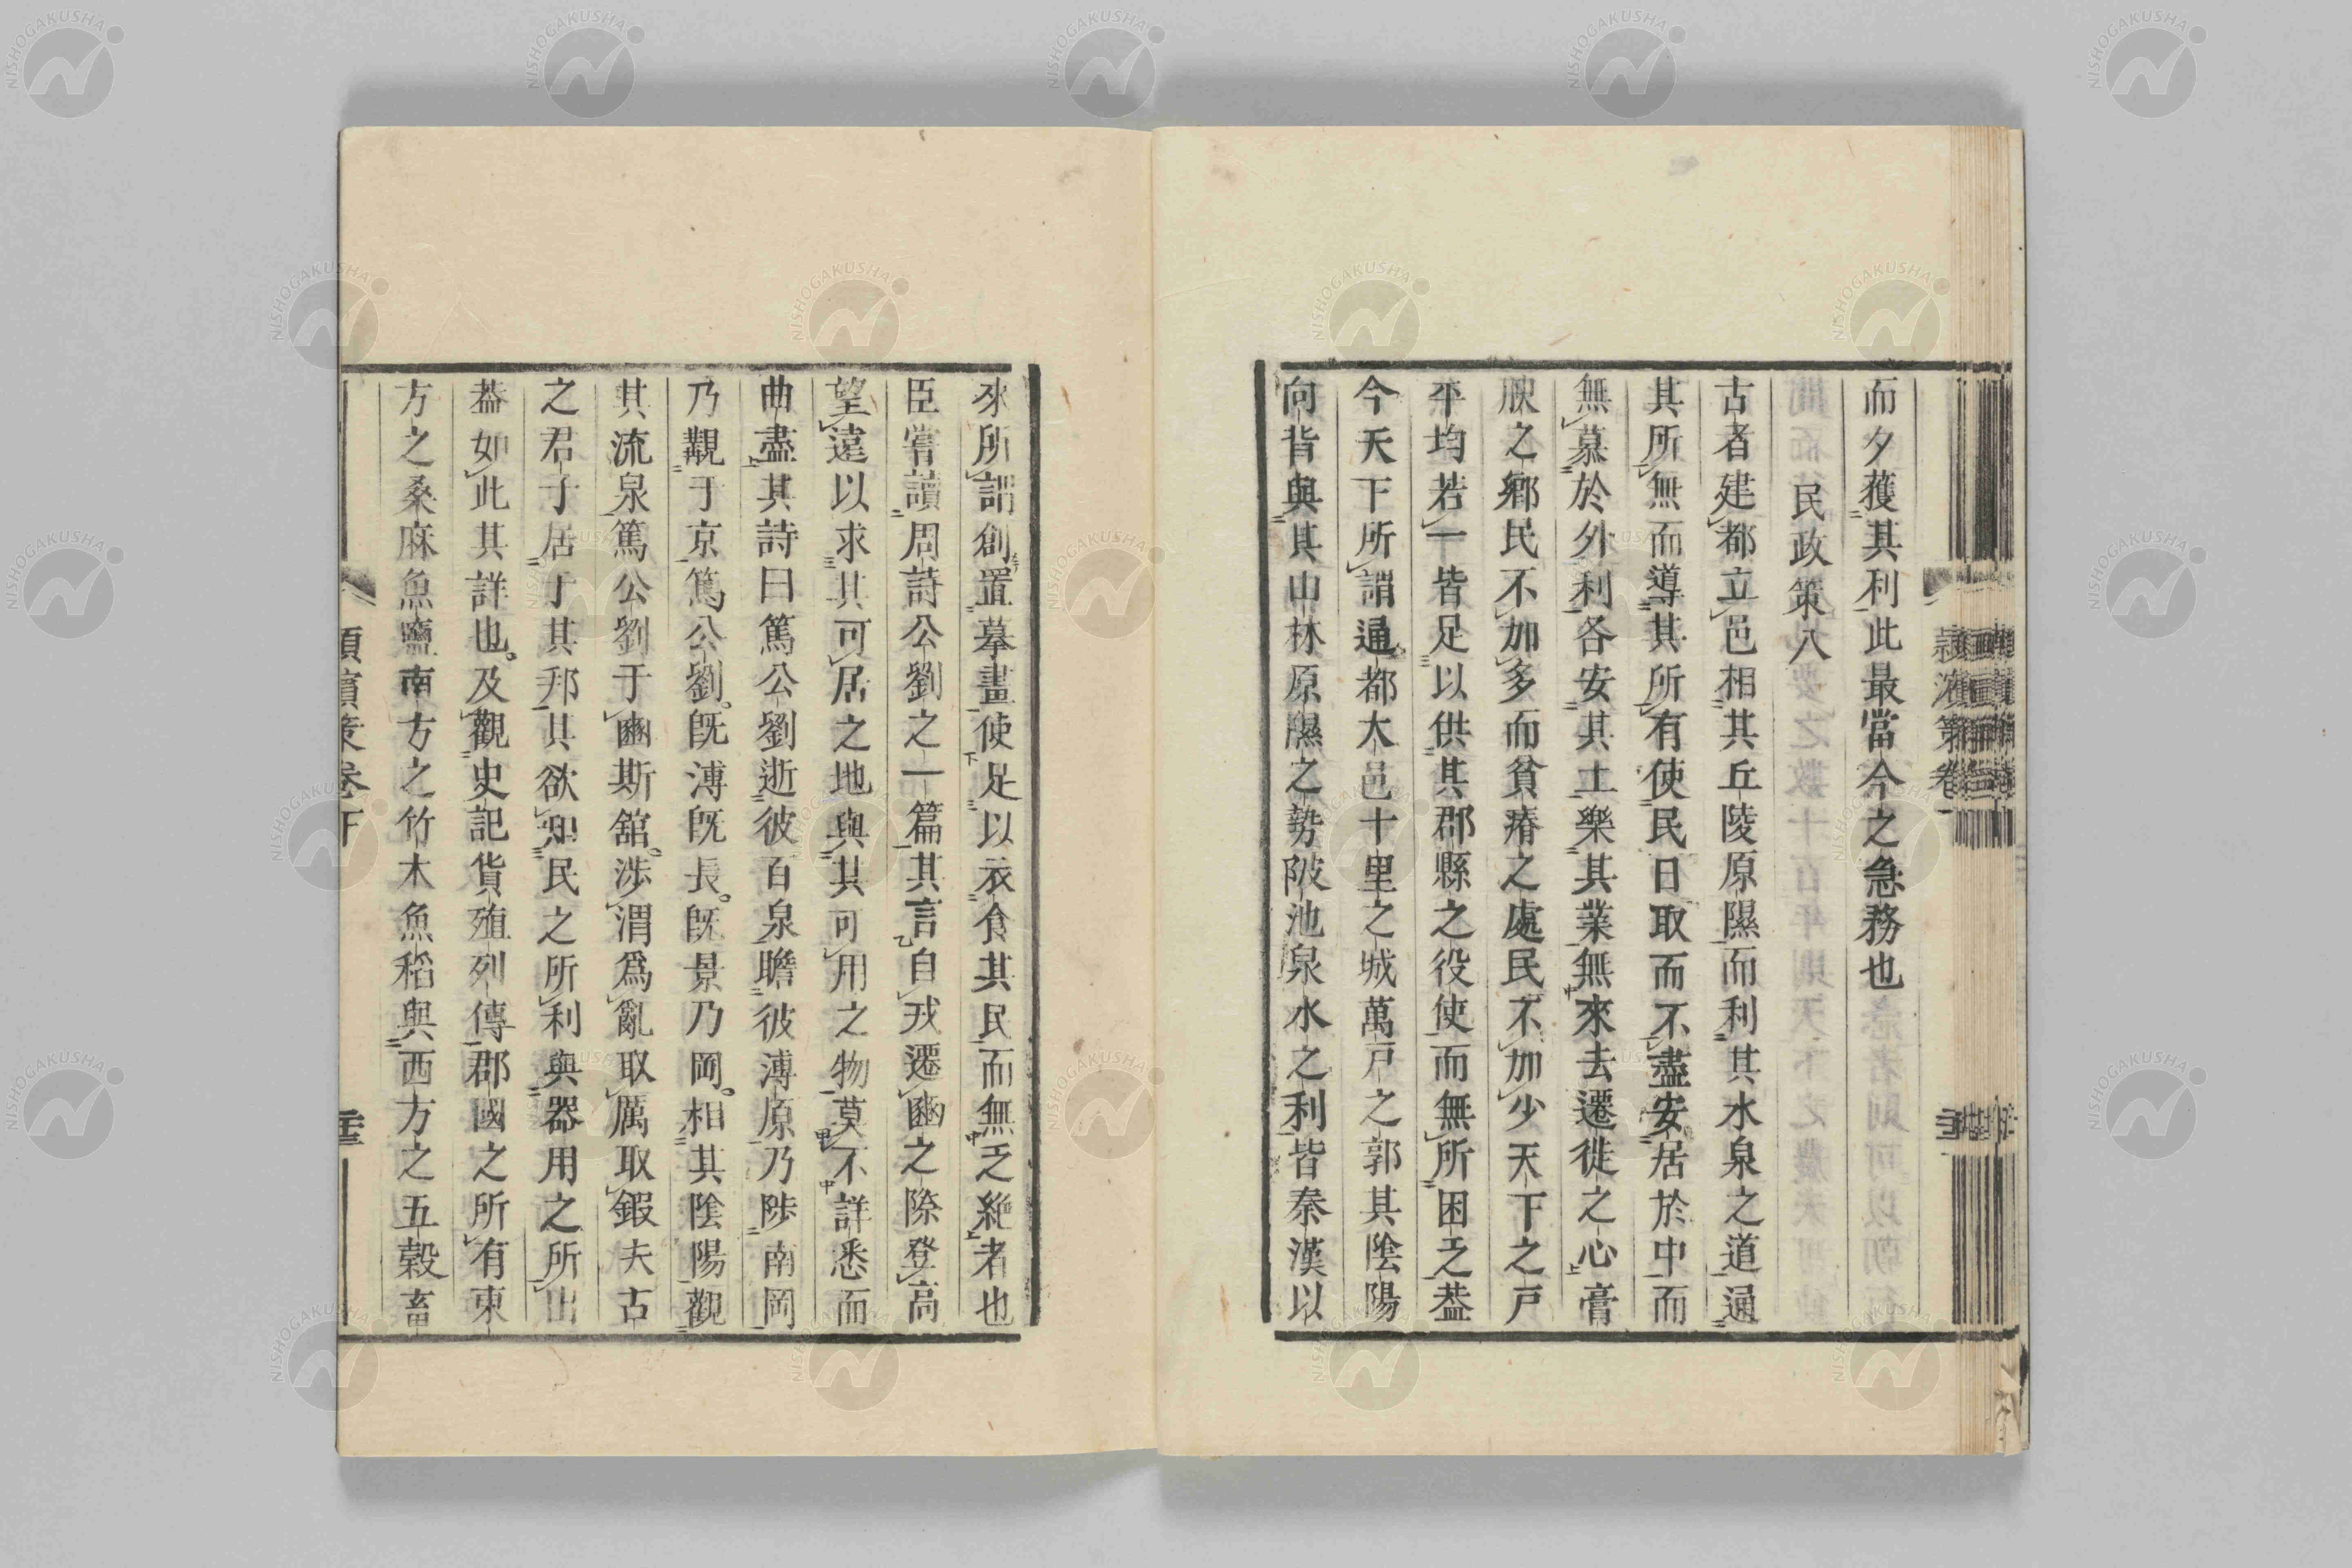 而夕獲其利此最當今之急務也
民政策八
古者建都立邑相其丘陵原隰而利其水泉之道通
其所無而導其所有使民日取而不盡安居於中而
無慕於外利各安其土樂其業無來去遷徙之心膏
腴之鄉民不加多而貧瘠之處民不加少天下之戸
平均若一皆足以供其郡縣之役使而無所困乏葢
今天下所謂通都大邑十里之城萬戸之郭其陰陽
向背與其山林原隰之勢陂池泉水之利皆秦漢以
來所謂創置摹畫使足以衣食其民而無乏絶者也
臣嘗讀周詩公劉之一篇其言自戎遷豳之際登高
望遠以求其可居之地與其可用之物莫不詳悉而
曲盡其詩曰篤公劉逝彼百泉瞻彼溥原乃陟南岡
乃覯于京篤公劉。既溥既長。既景乃岡。相其陰陽觀
其流泉篤公劉于豳斯舘。涉渭爲亂取厲取鍜夫古
之君子居于其邦其欲知民之所利與器用之所出
葢如此其詳也。及觀史記貨殖列傳郡國之所有東
方之桑麻魚鹽南方之竹木魚稻與西方之五穀畜
NISHOGAKUSHA